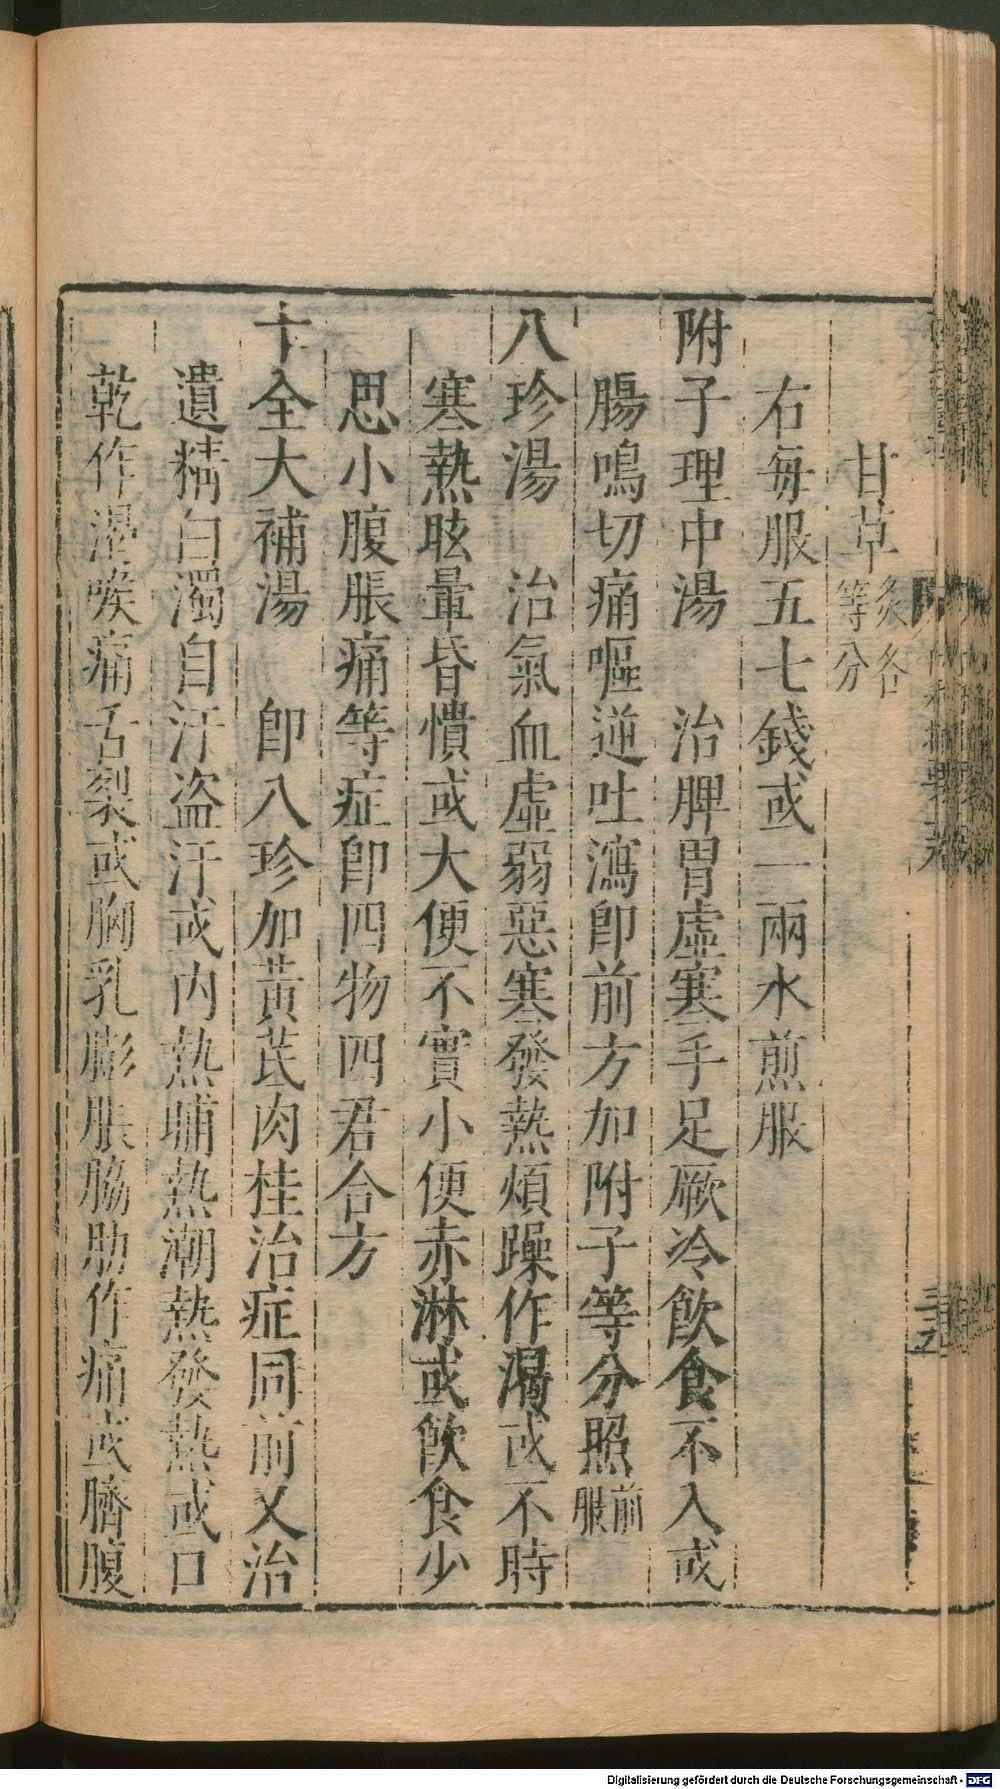 甘草炙各等分
右每服五七錢或一兩水煎服
附子理中湯　治脾胃虛寒手足厥冷飲食不入或
腸鳴切痛嘔逆吐瀉卽前方加附子等分照前服
八珍湯　治氣血虛弱惡寒發熱煩躁作渴或不時
寒熱眩暈昏憒或大便不實小便赤淋或飲食少
思小腹脹痛等症卽四物四君合方
十全大補湯　卽八珍加黃芪肉桂治症同前又治
遺精白濁自汗盜汗或內熱晡熱潮熱發熱或口
乾作渴喉痛舌裂或胸乳膨脹脇肋作痛或臍腹
Digitalisierung gefördert durch die Deutsche Forschungsgemeinschaft - DFG